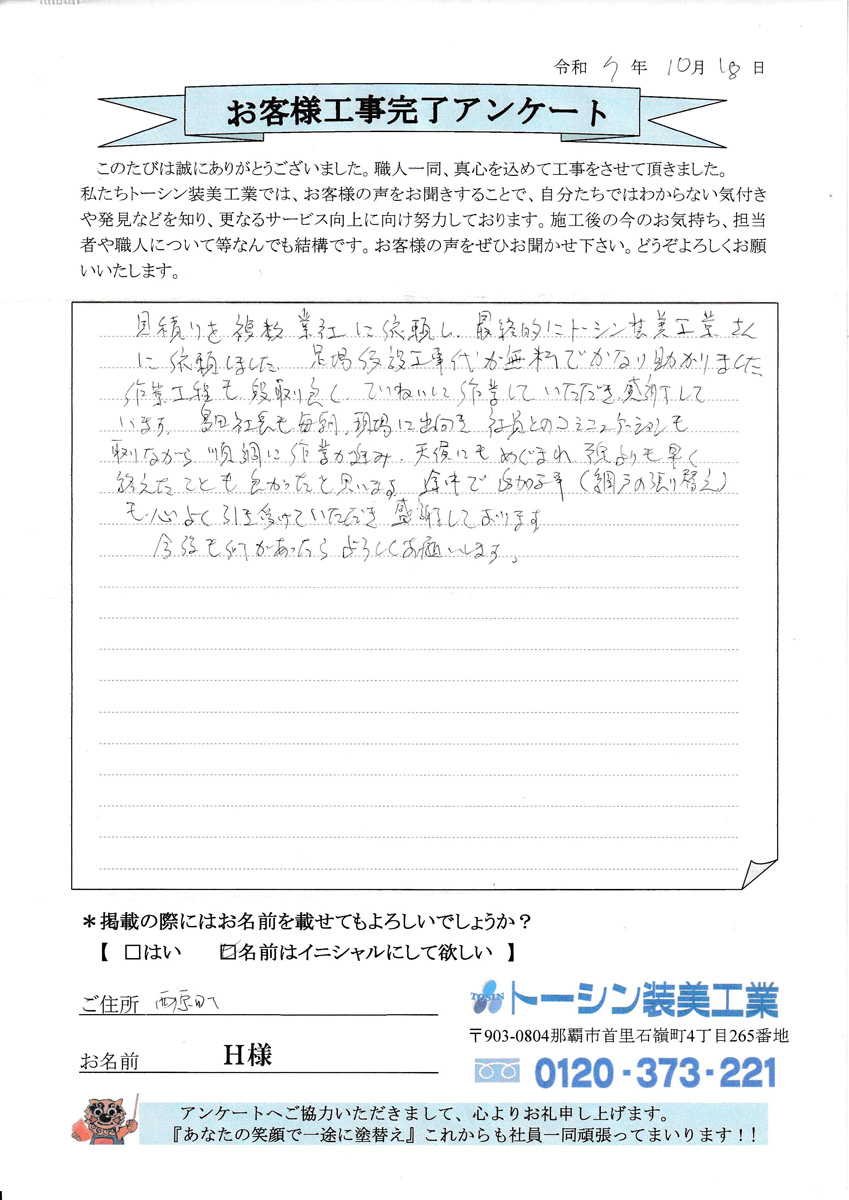 令和 7 年 10月 18 日
お客様工事完了アンケート
このたびは誠にありがとうございました。職人一同、真心を込めて工事をさせて頂きました。
私たちトーシン装美工業では、お客様の声をお聞きすることで、自分たちではわからない気付き
や発見などを知り、更なるサービス向上に向け努力しております。施工後の今のお気持ち、担当
者や職人について等なんでも結構です。お客様の声をぜひお聞かせ下さい。どうぞよろしくお願
いいたします。
見積りを複数業社に依頼し、最終的にトーシン装美工業さん
に依頼しました。足場仮設工事代が無料でかなり助かりました
作業工程も段取り良く、ていねいに作業していただき感謝して
います。 社長も毎朝、現場に出向き社員とのコミュニケーションも
取りながら順調に作業が進み、天候にもめぐまれ よりも早く
終えたことも良かったと思います。途中で追加工事(網戸の張り替え)
も心よく引き受けていただき感謝しております
今後も何かあったらよろしくお願いします。
*掲載の際にはお名前を載せてもよろしいでしょうか?
【 □はい ☑名前はイニシャルにして欲しい 】
ご住所 西原町
お名前 H様
TOSIN トーシン装美工業
〒903-0804那覇市首里石嶺町4丁目265番地
0120-373-221
アンケートへご協力いただきまして、心よりお礼申し上げます。
『あなたの笑顔で一途に塗替え』これからも社員一同頑張ってまいります!!